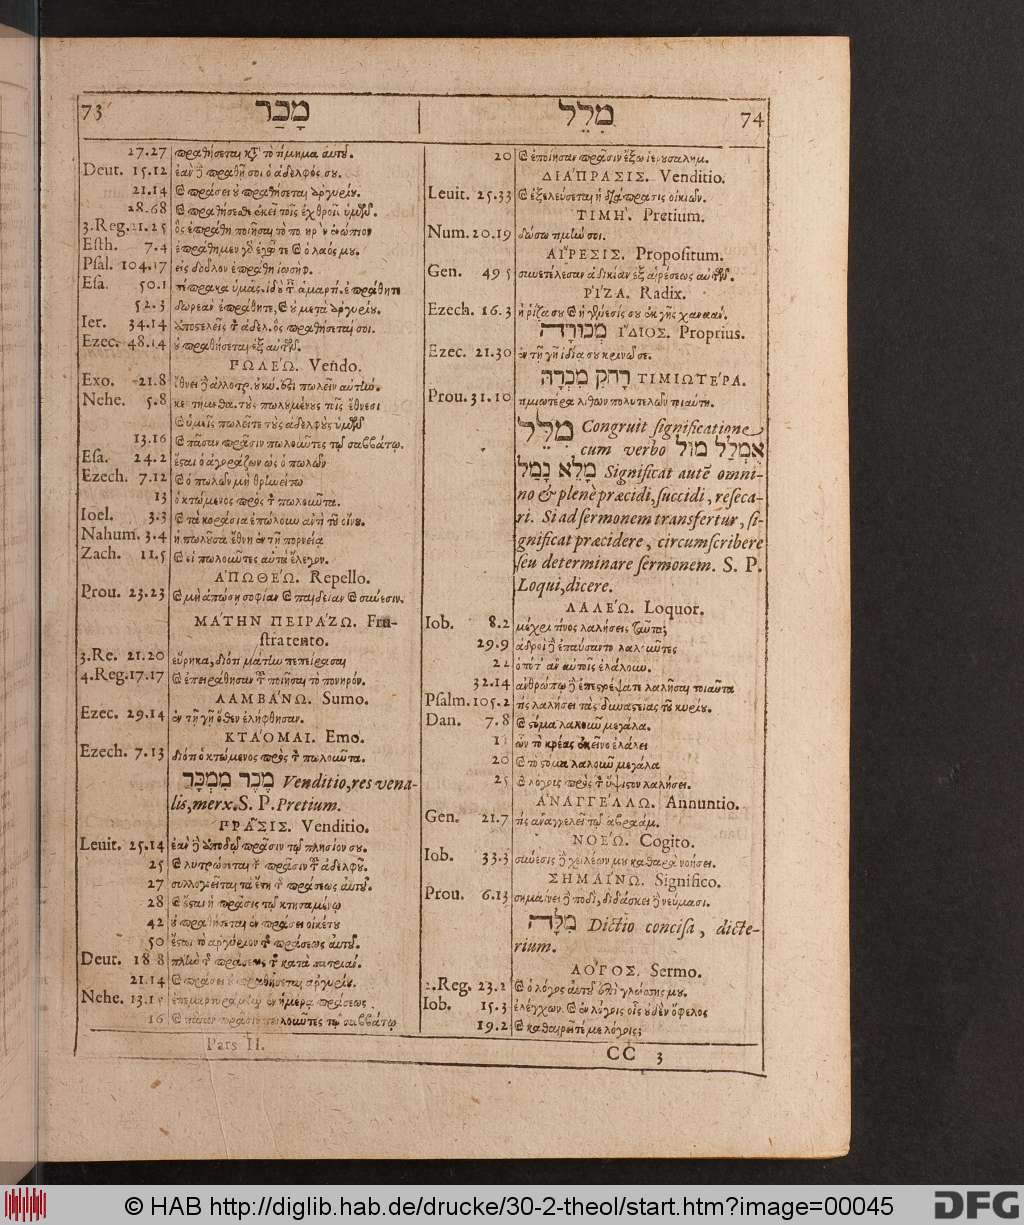 73 מָכַר
27.27 πραθήσεται κτ᾽ τὸ τίμημα αυτȣ͂.
Deut. 15.12 ἐὰν ἢ πραθῇ σοι ὁ ἀδελφός σου.
21.14 καὶ πράσει ȣ πραθήσεται ἀργυρίȣ.
28.68 καὶ πραθήσεσθε ἐκεῖ τοῖς ἐχθροῖς ὑμῶν.
3.Reg. 21.25 ὃς ἐπράθη ποιῆσαι τὸ πονηρὸν ἐνώπιον
Esth. 7.4 ἐπράθημεν γὸ ἐγώ τε καὶ ὁ λαός μου.
Psal. 104.17 εἰς δοῦλον ἐπράθη ἰωσήφ.
Esa. 50.1 πέπρακα ὑμᾶς. ἰδȣ̀ τ᾽ ἁμαρτί. ἐπράθητε
52.3 δωρεὰν ἐπράθητε, καὶ ȣ μετὰ ἀργυρίȣ.
Ier. 34.14 ἀποστελεῖς τ᾽ ἀδελ. ὃς πραθήσεταί σοι.
Ezec. 48.14 ȣ πραθήσεται ἐξ αὐτῶν.
ΠΩΛΕΏ. Vendo.
Exo. 21.8 ἔθνει δὲ ἀλλοτρ. πωλεῖν αυτίω.
Nehe. 5.8 τοὺς πωλουμένους τοῖς ἔθνεσι
καὶ ὑμεῖς πωλεῖτε τοὺς ἀδελφοὺς ὑμῶν
13.16 καὶ πᾶσαν πρᾶσιν πωλοῦντες τῷ σαββάτῳ.
Esa. 24.2 ἔσται ὁ ἀγοράζων ὡς ὁ πωλῶν
Ezech. 7.12 καὶ ὁ πωλῶν μὴ θρηνείτω
13 ὁ κτώμενος πρὸς τ᾽ πωλοῦντα.
Ioel. 3.3 καὶ τὰ κοράσια ἐπώλουν ἀντὶ τοῦ οἴνου.
Nahum. 3.4 ἡ πωλοῦσα ἔθνη ἐν τῇ πορνείᾳ
Zach. 11.5 καὶ οἱ πωλοῦντες αὐτὰ ἔλεγον.
ΑΠΩΘΕΏ. Repello.
Prou. 23.23 καὶ μὴ ἀπώσῃ σοφίαν καὶ παιδείαν καὶ σύνεσιν.
ΜΑΤΗΝ ΠΕΙΡΑΖΩ. Fru-
stra tento.
3.Re. 21.20 εὕρηκα, διότι μάτην πέπρασαι
4.Reg. 17.17 καὶ ἐπειράθησαν τῇ ποιῆσαι τὸ πονηρόν.
ΛΑΜΒΑΝΩ. Sumo.
Ezec. 29.14 ἐν τῇ γῇ ὅθεν ἐλήφθησαν.
ΚΤΑΟΜΑΙ. Emo.
Ezech. 7.13 διότι ὁ κτώμενος πρὸς τ᾽ πωλοῦντα.
מֶכֶר מִמְכָּר Venditio, res vena-
lis, merx. S. P. Pretium.
ΠΡΑΣΙΣ. Venditio.
Leuit. 25.14 ἐὰν δὲ ἀποδῷ πρᾶσιν τῷ πλησίον σου.
25 καὶ λυτρώσεται τ᾽ πρᾶσιν τȣ͂ ἀδελφȣ͂.
27 συλλογιεῖται τὰ ἔτη τ᾽ πράσεως αὐτȣ͂.
28 καὶ ἔσται ἡ πρᾶσις τῷ κτησαμένῳ
42 ȣ πραθήσεται ἐν πράσει οἰκέτου
50 ἔσται τὸ ἀργύριον τ᾽ πράσεως αὐτȣ͂.
Deut. 18.8 πλὴν τ᾽ πράσεως τ᾽ κατὰ πατριάν.
21.14 καὶ πράσει ȣ πραθήσεται ἀργυρίȣ.
Nehe. 13.15 ἐπεμαρτυράμην ἐν ἡμέρᾳ πράσεως.
16 καὶ πᾶσαν πρᾶσιν πωλοῦντες τῷ σαββάτῳ
Pars II.
מִלֵּל 74
20 καὶ ἐποίησαν πρᾶσιν ἔξω ἰερουσαλημ.
ΔΙΑΠΡΑΣΙΣ. Venditio.
Leuit. 25.33 καὶ ἐξελεύσεται ἡ διάπρασις οἰκιῶν.
ΤΙΜΗ. Pretium.
Num. 20.19 δώσω τιμήν σοι.
ΑΙΡΕΣΙΣ. Propositum.
Gen. 49 5 συνετέλεσαν ἀδικίαν ἐξ αἱρέσεως αὐτῶν.
ΡΙΖΑ. Radix.
Ezech. 16.3 ἡ ῥίζα σου καὶ ἡ γένεσίς σου ἐκ γῆς χανααν.
מְכוּרָה ἼΔΙΟΣ. Proprius.
Ezec. 21.30 ἐν τῇ γῇ ἰδίᾳ σου κρινῶ σε.
רָחֹק מִכְרָהּ ΤΙΜΙΩΤΕΡΑ.
Prou. 31.10 τιμιωτέρα λίθων πολυτελῶν τοιαύτη.
מִלֵּל Congruit significatione
cum verbo אֻמְלַל מוּל
מָלֵא נָמַל Significat autē omni-
no & plenè præcidi, succidi, reseca-
ri. Si ad sermonem transfertur, si-
gnificat præcidere, circumscribere
seu determinare sermonem. S. P.
Loqui, dicere.
ΛΑΛΕΏ. Loquor.
Iob. 8.2 μέχρι τίνος λαλήσεις ταῦτα;
29.9 ἁδροὶ δὲ ἐπαύσαντο λαλοῦντες
22 ὁπότ᾽ ἂν αὐτοῖς ἐλάλουν.
32.14 ἀνθρώπῳ δὲ ἐπετρέψατε λαλῆσαι τοιαῦτα
Psalm. 105.2 τίς λαλήσει τὰς δυναστείας τοῦ κυρίȣ.
Dan. 7.8 καὶ στόμα λαλοῦν μεγάλα.
11 ὧν τὸ κρέας ἐκεῖνο ἐλάλει
20 καὶ τὸ στόμα λαλοῦν μεγάλα
25 καὶ λόγους πρὸς τ᾽ ὕψιστον λαλήσει.
ΑΝΑΓΓΕΛΛΩ. Annuntio.
Gen. 21.7 τίς ἀναγγελεῖ τῷ αβραάμ.
ΝΟΕΏ. Cogito.
Iob. 33.3 σύνεσις δὲ χειλέων μου καθαρὰ νοήσει.
ΣΗΜΑΙΝΩ. Significo.
Prou. 6.13 σημαίνει δὲ ποδί, διδάσκει δὲ νεύμασι.
מִלָּה Dictio concisa, dicte-
rium.
ΛΟΓΟΣ. Sermo.
2.Reg. 23.2 καὶ ὁ λόγος αὐτȣ͂ ἐπὶ γλώσσης μου.
Iob. 15.3 ἐλέγχων. καὶ ἐν λόγοις οἷς οὐδὲν ὄφελος
19.2 καὶ καθαιρεῖτέ με λόγοις;
CC 3
© HAB http://diglib.hab.de/drucke/30-2-theol/start.htm?image=00045
DFG